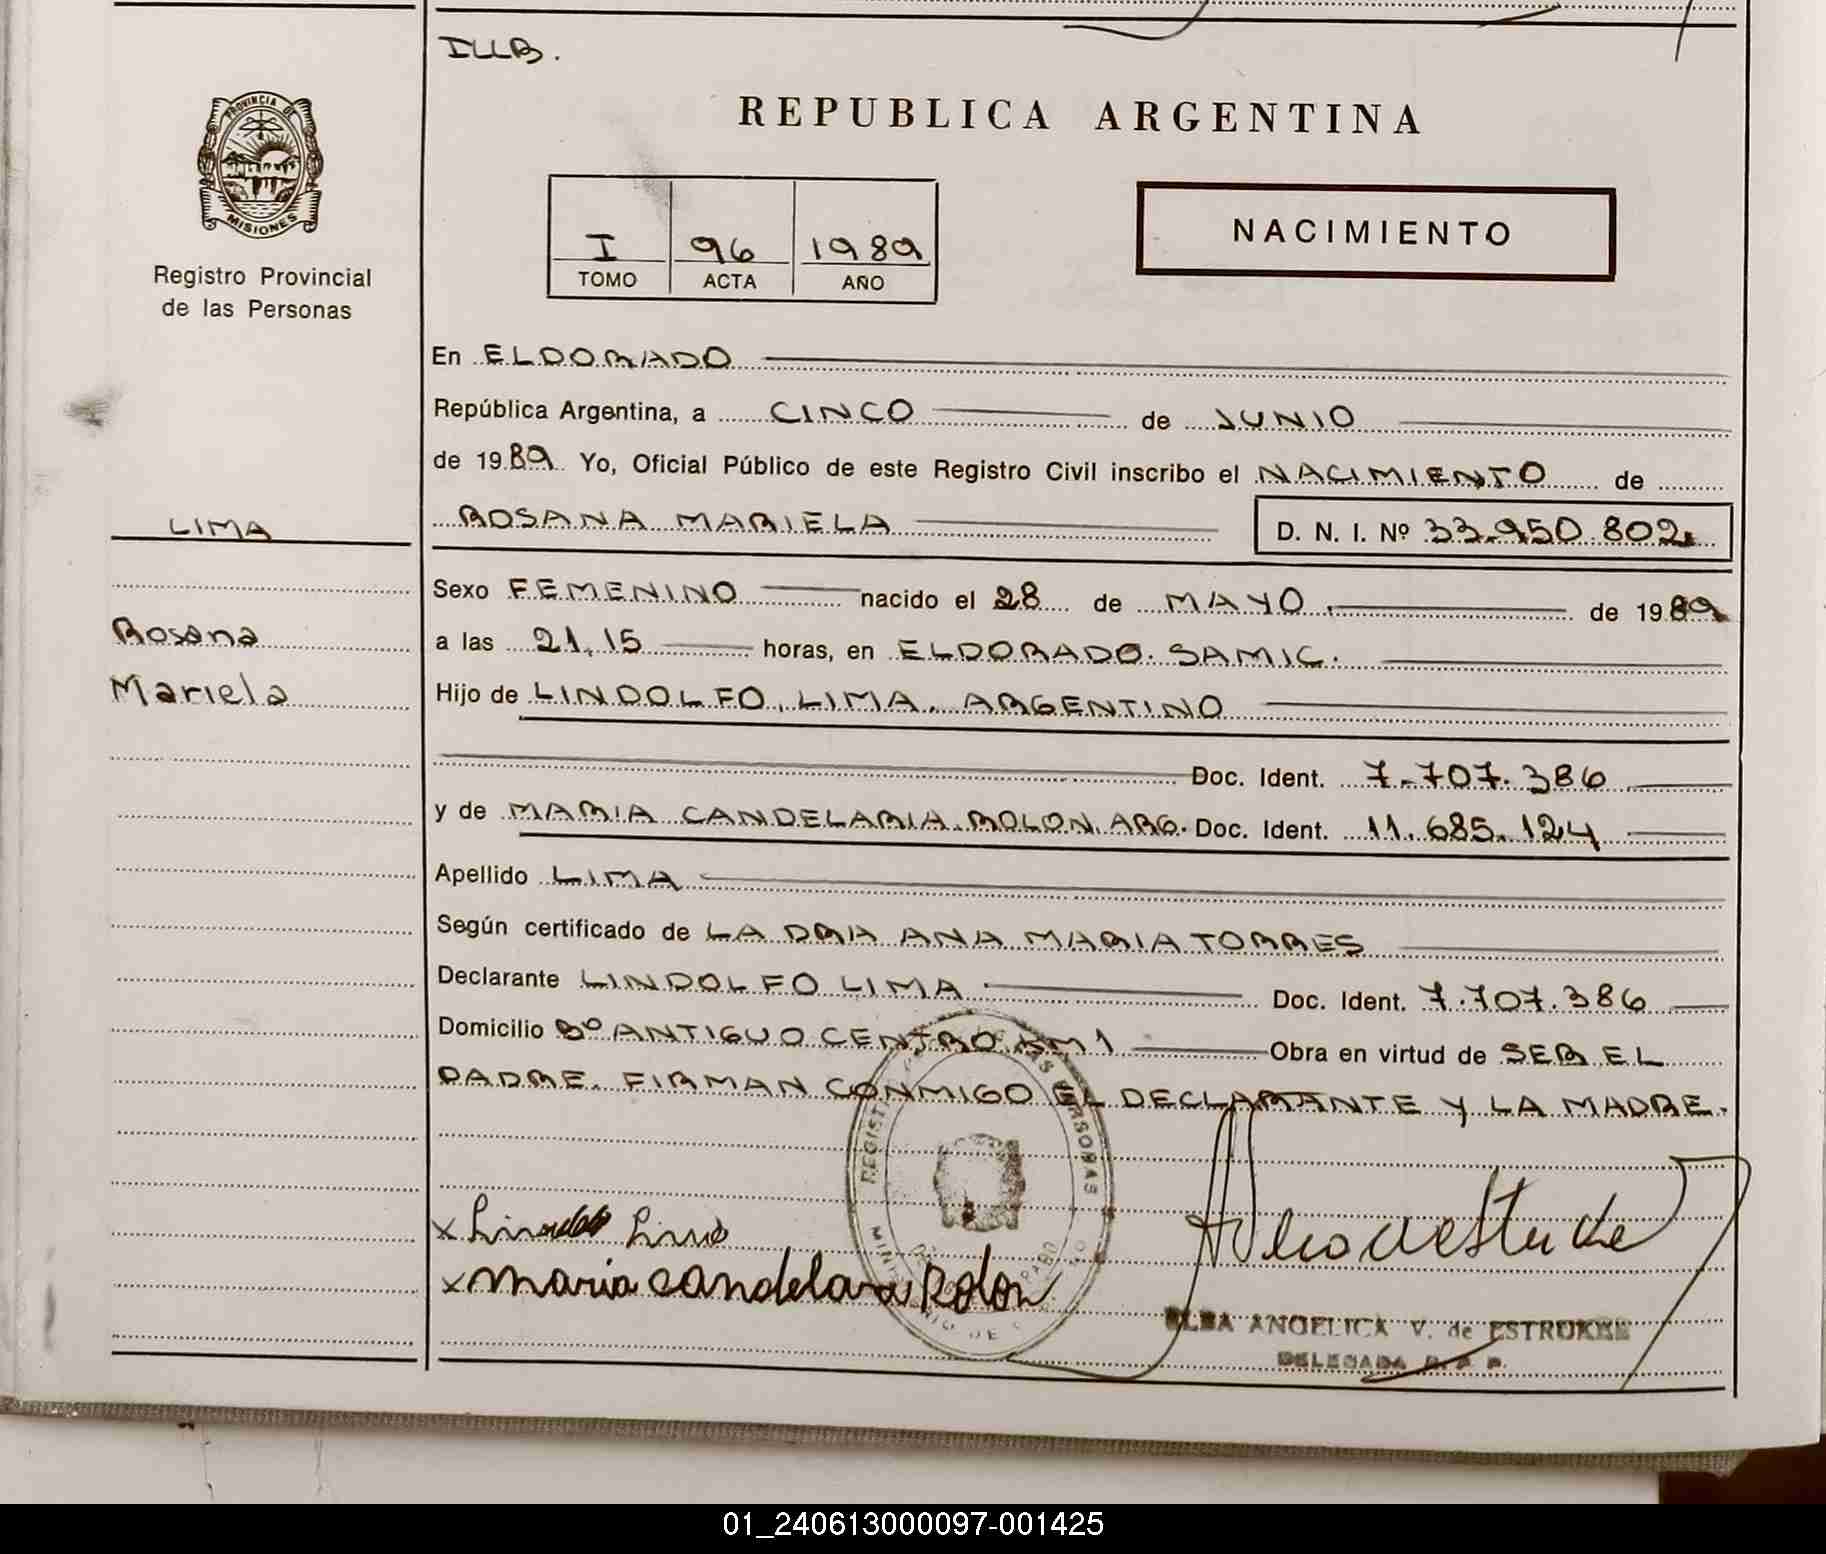 ILLB.
PROVINCIA DE
MISIONES
Registro Provincial
de las Personas
REPUBLICA ARGENTINA
I 96 1989
TOMO ACTA AÑO
NACIMIENTO
En ELDORADO
República Argentina, a CINCO de JUNIO
de 1989 Yo, Oficial Público de este Registro Civil inscribo el NACIMIENTO de
LIMA
ROSANA MARIELA D. N. I. Nº 33.950.802
Sexo FEMENINO nacido el 28 de MAYO de 1989
Rosana
a las 21,15 horas, en ELDORADO. SAMIC.
Mariela
Hijo de LINDOLFO, LIMA. ARGENTINO
Doc. Ident. 7.707.386
y de MARIA CANDELARIA ROLON. ARG. Doc. Ident. 11.685.124
Apellido LIMA
Según certificado de LA DRA ANA MARIA TORRES
Declarante LINDOLFO LIMA Doc. Ident. 7.707.386
Domicilio Bº ANTIGUO CENTRO KM 1 Obra en virtud de SER EL
PADRE. FIRMAN CONMIGO EL DECLARANTE Y LA MADRE.
x Lima
x maria candelaria Rolon
ELBA ANGELICA V. de ESTRUKKE
DELEGADA R. P. P.
01_240613000097-001425